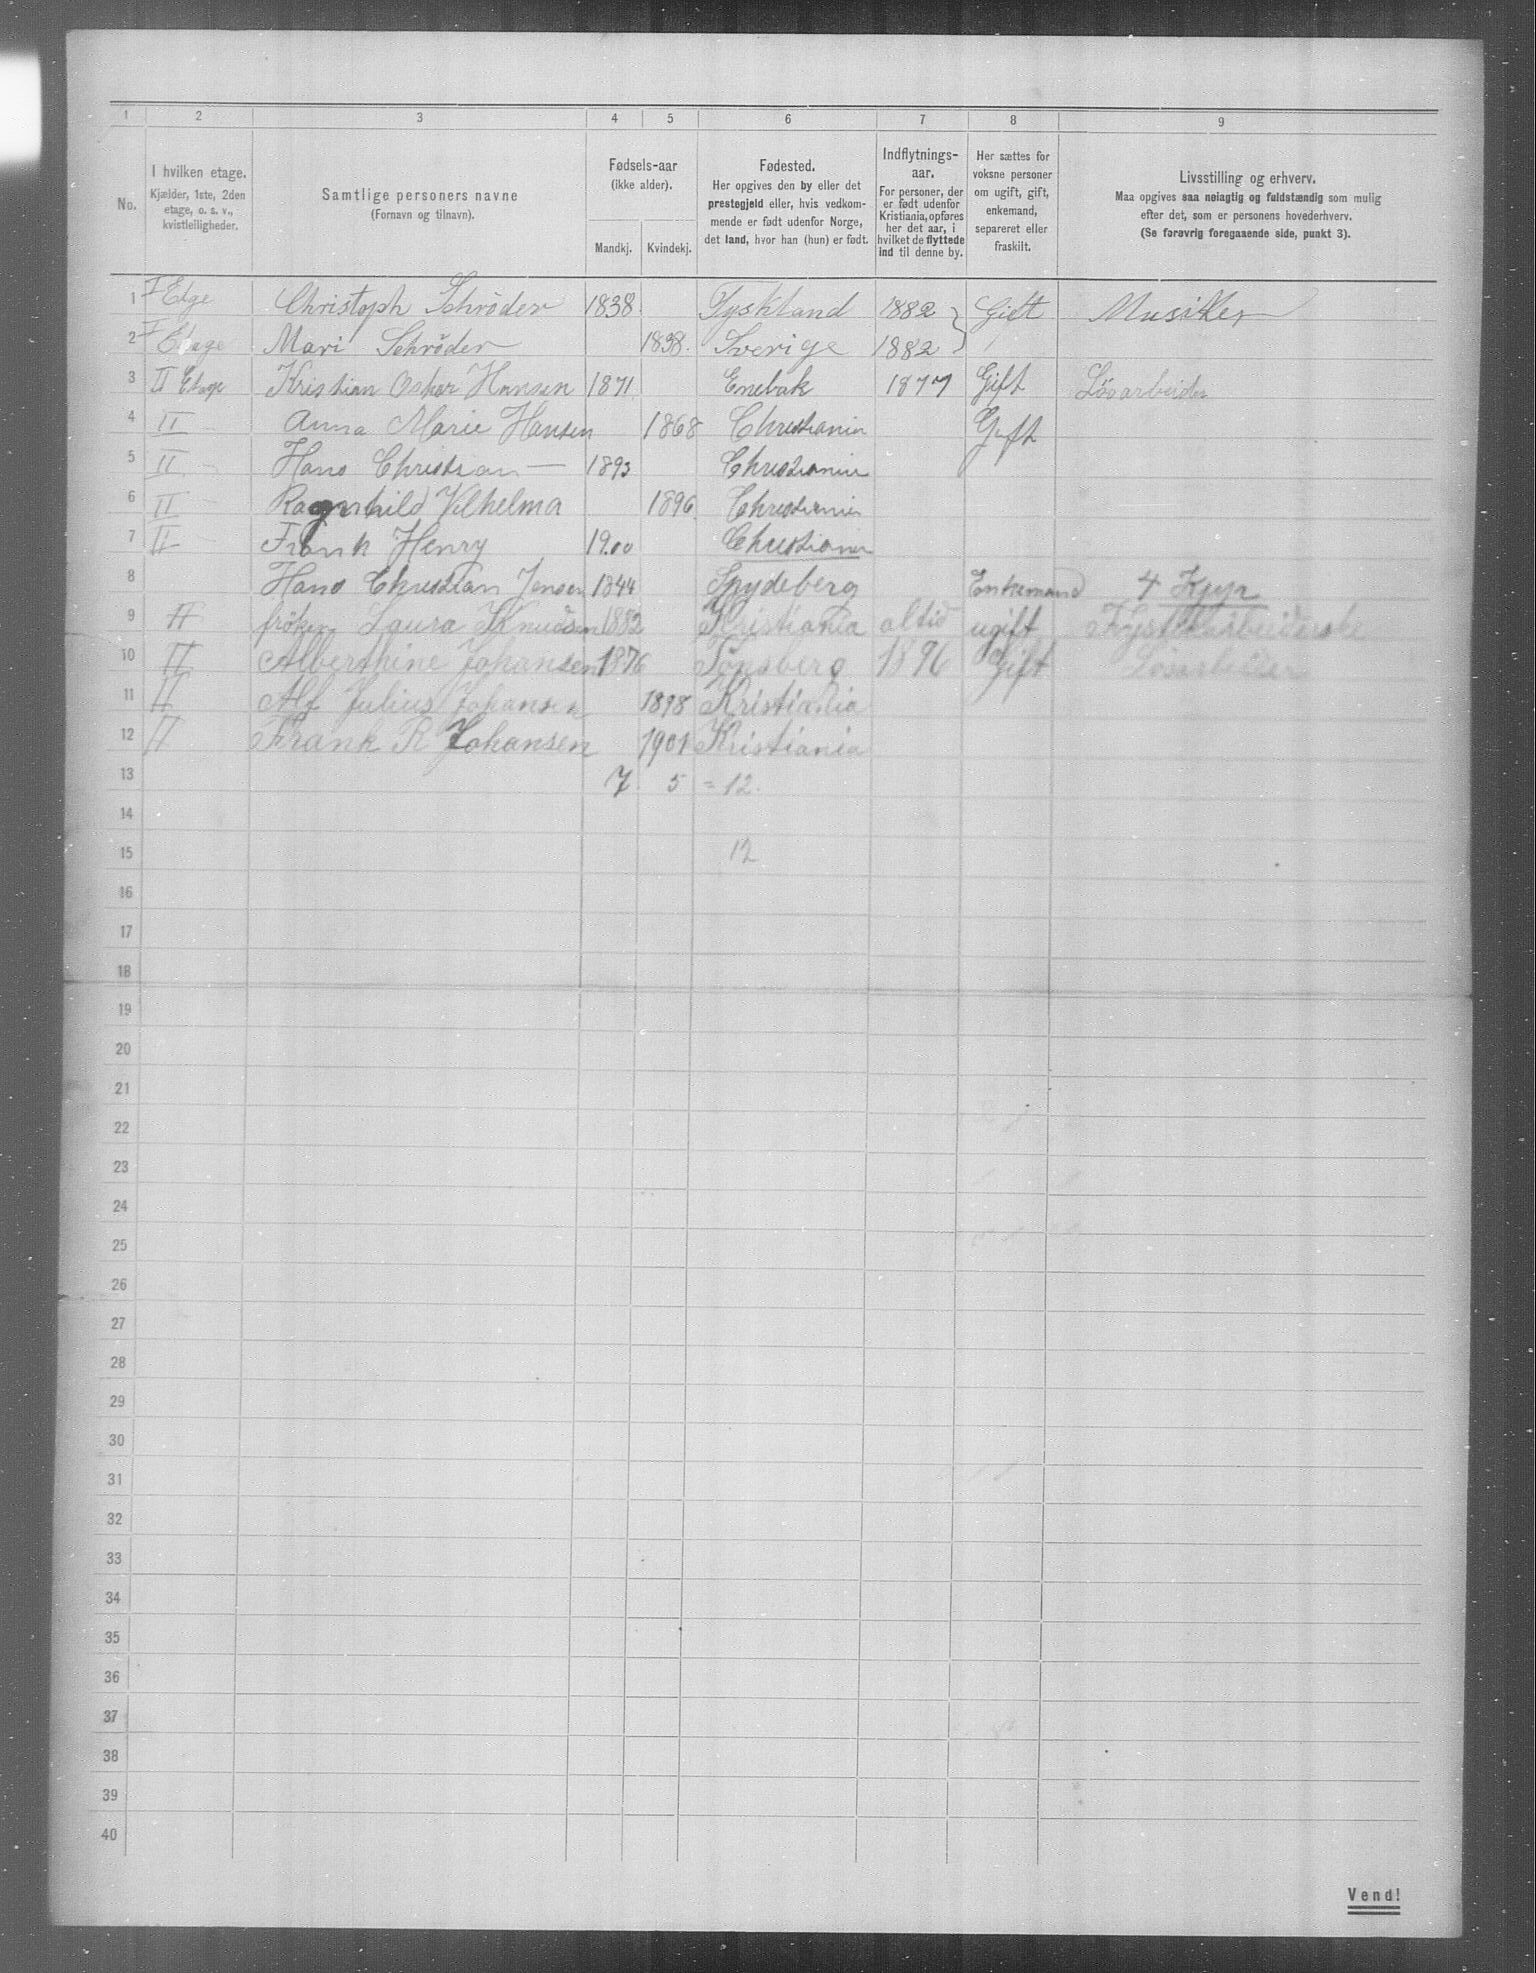 1 2 3 4 5 6 7 8 9
No.
I hvilken etage.
Kjælder, 1ste, 2den
etage, o. s. v.,
kvistleiligheder.
Samtlige personers navne
(Fornavn og tilnavn).
Fødsels-aar
(ikke alder).
Mandkj. Kvindekj.
Fødested.
Her opgives den by eller det
prestegjeld eller, hvis vedkom-
mende er født udenfor Norge,
det land, hvor han (hun) er født.
Indflytnings-
aar.
For personer, der
er født udenfor
Kristiania, opføres
her det aar, i
hvilket de flyttede
ind til denne by.
Her sættes for
voksne personer
om ugift, gift,
enkemand,
separeret eller
fraskilt.
Livsstilling og erhverv.
Maa opgives saa nøiagtig og fuldstændig som mulig
efter det, som er personens hovederhverv.
(Se forøvrig foregaaende side, punkt 3).
1 I Etge Christoph Schrøder 1838 Tyskland 1882 Gift Musiker
2 I Etage Mari Schrøder 1838. Sverige 1882
3 II Etage Kristian Oskar Hansen 1871 Enebak 1877 Gift Løsarbeider
4 II Anna Marie Hansen 1868 Christiania Gift
5 II Hans Christian — 1893 Christiania
6 II Ragnhild Vilhelma 1896 Christiania
7 II Frank Henry 1900 Christiania
8 Hans Christian Jensen 1844 Spydeberg Enkemand 4 Kyr
9 II frøken Laura Knudsen 1882 Kristiania altid ugift
10 II Alberthine Johansen 1876 Tønsberg 1896 Gift Løsarbeider
11 II Alf Julius Johansen 1898 Kristiania
12 II Frank R Johansen 1901 Kristiania
13 7 5 = 12.
14
15 12
16
17
18
19
20
21
22
23
24
25
26
27
28
29
30
31
32
33
34
35
36
37
38
39
40
Vend!